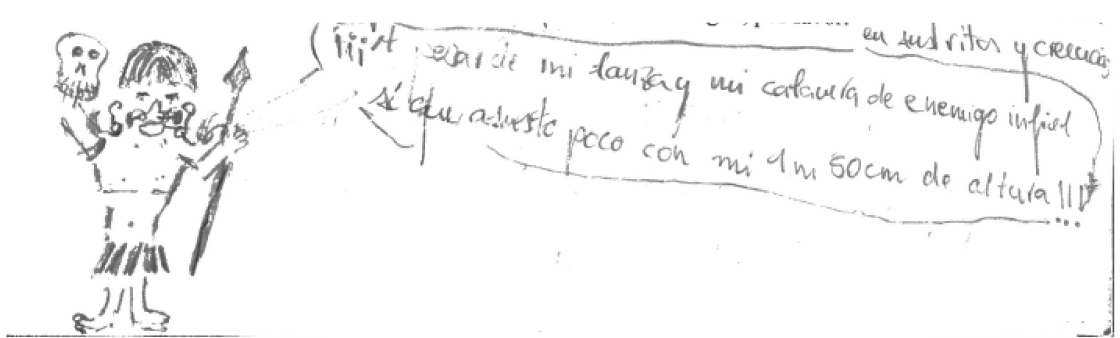 en sus ritos y creencias
¡¡¡A pesar de mi lanza y mi calavera de enemigo infiel
sé que asusto poco con mi 1m 50cm de altura!!!
...